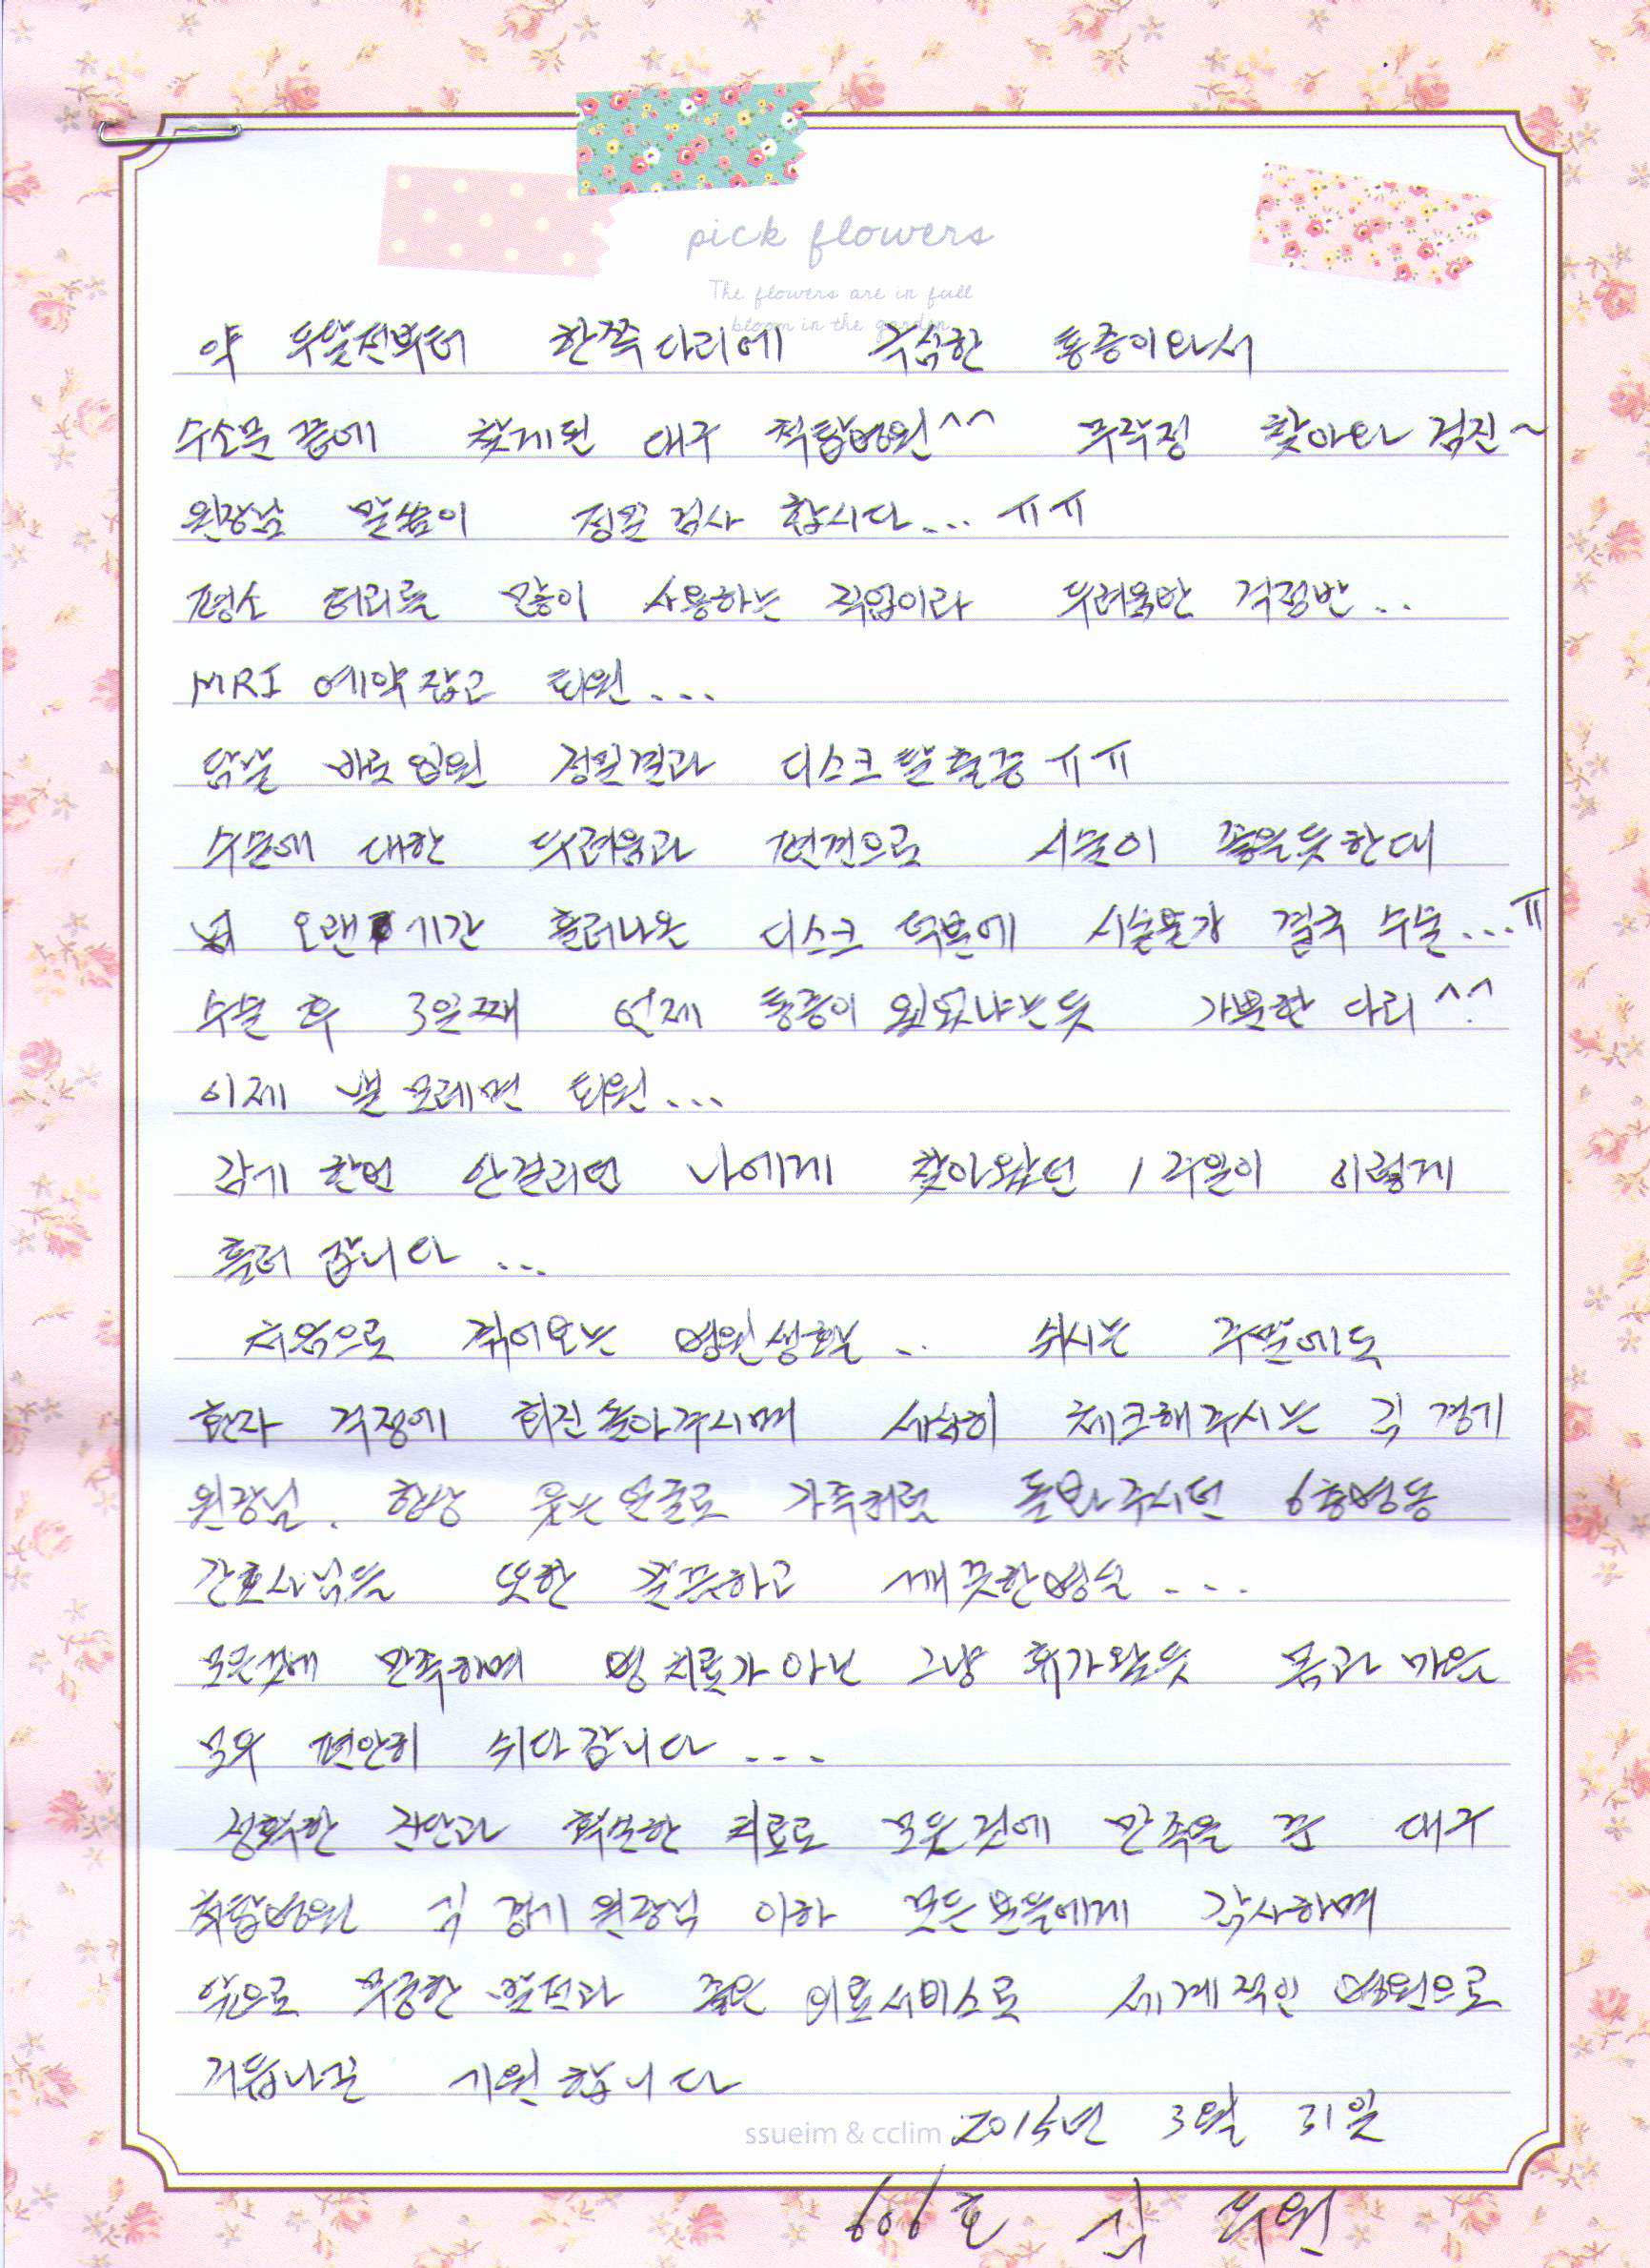 pick flowers
The flowers are in full
bloom in the garden
약 두달전부터 한쪽다리에 극심한 통증이와서
수소문 끝에 찾게된 대구 척탑병원^^ 무작정 찾아와 검진~
원장님 말씀이 정밀검사 합시다... ㅠㅠ
평소 허리를 많이 사용하는 직업이라 두려움반 걱정반..
MRI 예약잡고 퇴원...
담날 바로입원 정밀결과 디스크탈출증 ㅠㅠ
수술에 대한 두려움과 편견으로 시술이 좋을듯한대
넘 오랜 기간 흘러나온 디스크 덕분에 시술불가 결국 수술...ㅠ
수술 후 3일째 언제 통증이 있었냐는듯 가뿐한 다리^^
이제 낼모레면 퇴원...
감기 한번 안걸리던 나에게 찾아왔던 1주일이 이렇게
흘러 갑니다 ...
처음으로 겪어보는 병원생활 .. 쉬시는 주말에도
환자 걱정에 회진돌아주시며 세심히 체크해주시는 김경기
원장님. 항상 웃는얼굴로 가족처럼 돌봐주시던 6층병동
간호사님들 또한 깔끔하고 깨끗한병실 ...
모든것에 만족하며 병치료가 아닌 그냥 휴가왔듯 몸과 마음
모두 편안히 쉬다갑니다 ...
정확한 진단과 확실한 치료로 모든것에 만족을 준 대구
척탑병원 김경기원장님 이하 모든분들에게 감사하며
앞으로 무궁한 발전과 좋은 의료서비스로 세계적인 병원으로
거듭나길 기원합니다
ssueim & cclim 2015년 3월 31일
606호 김